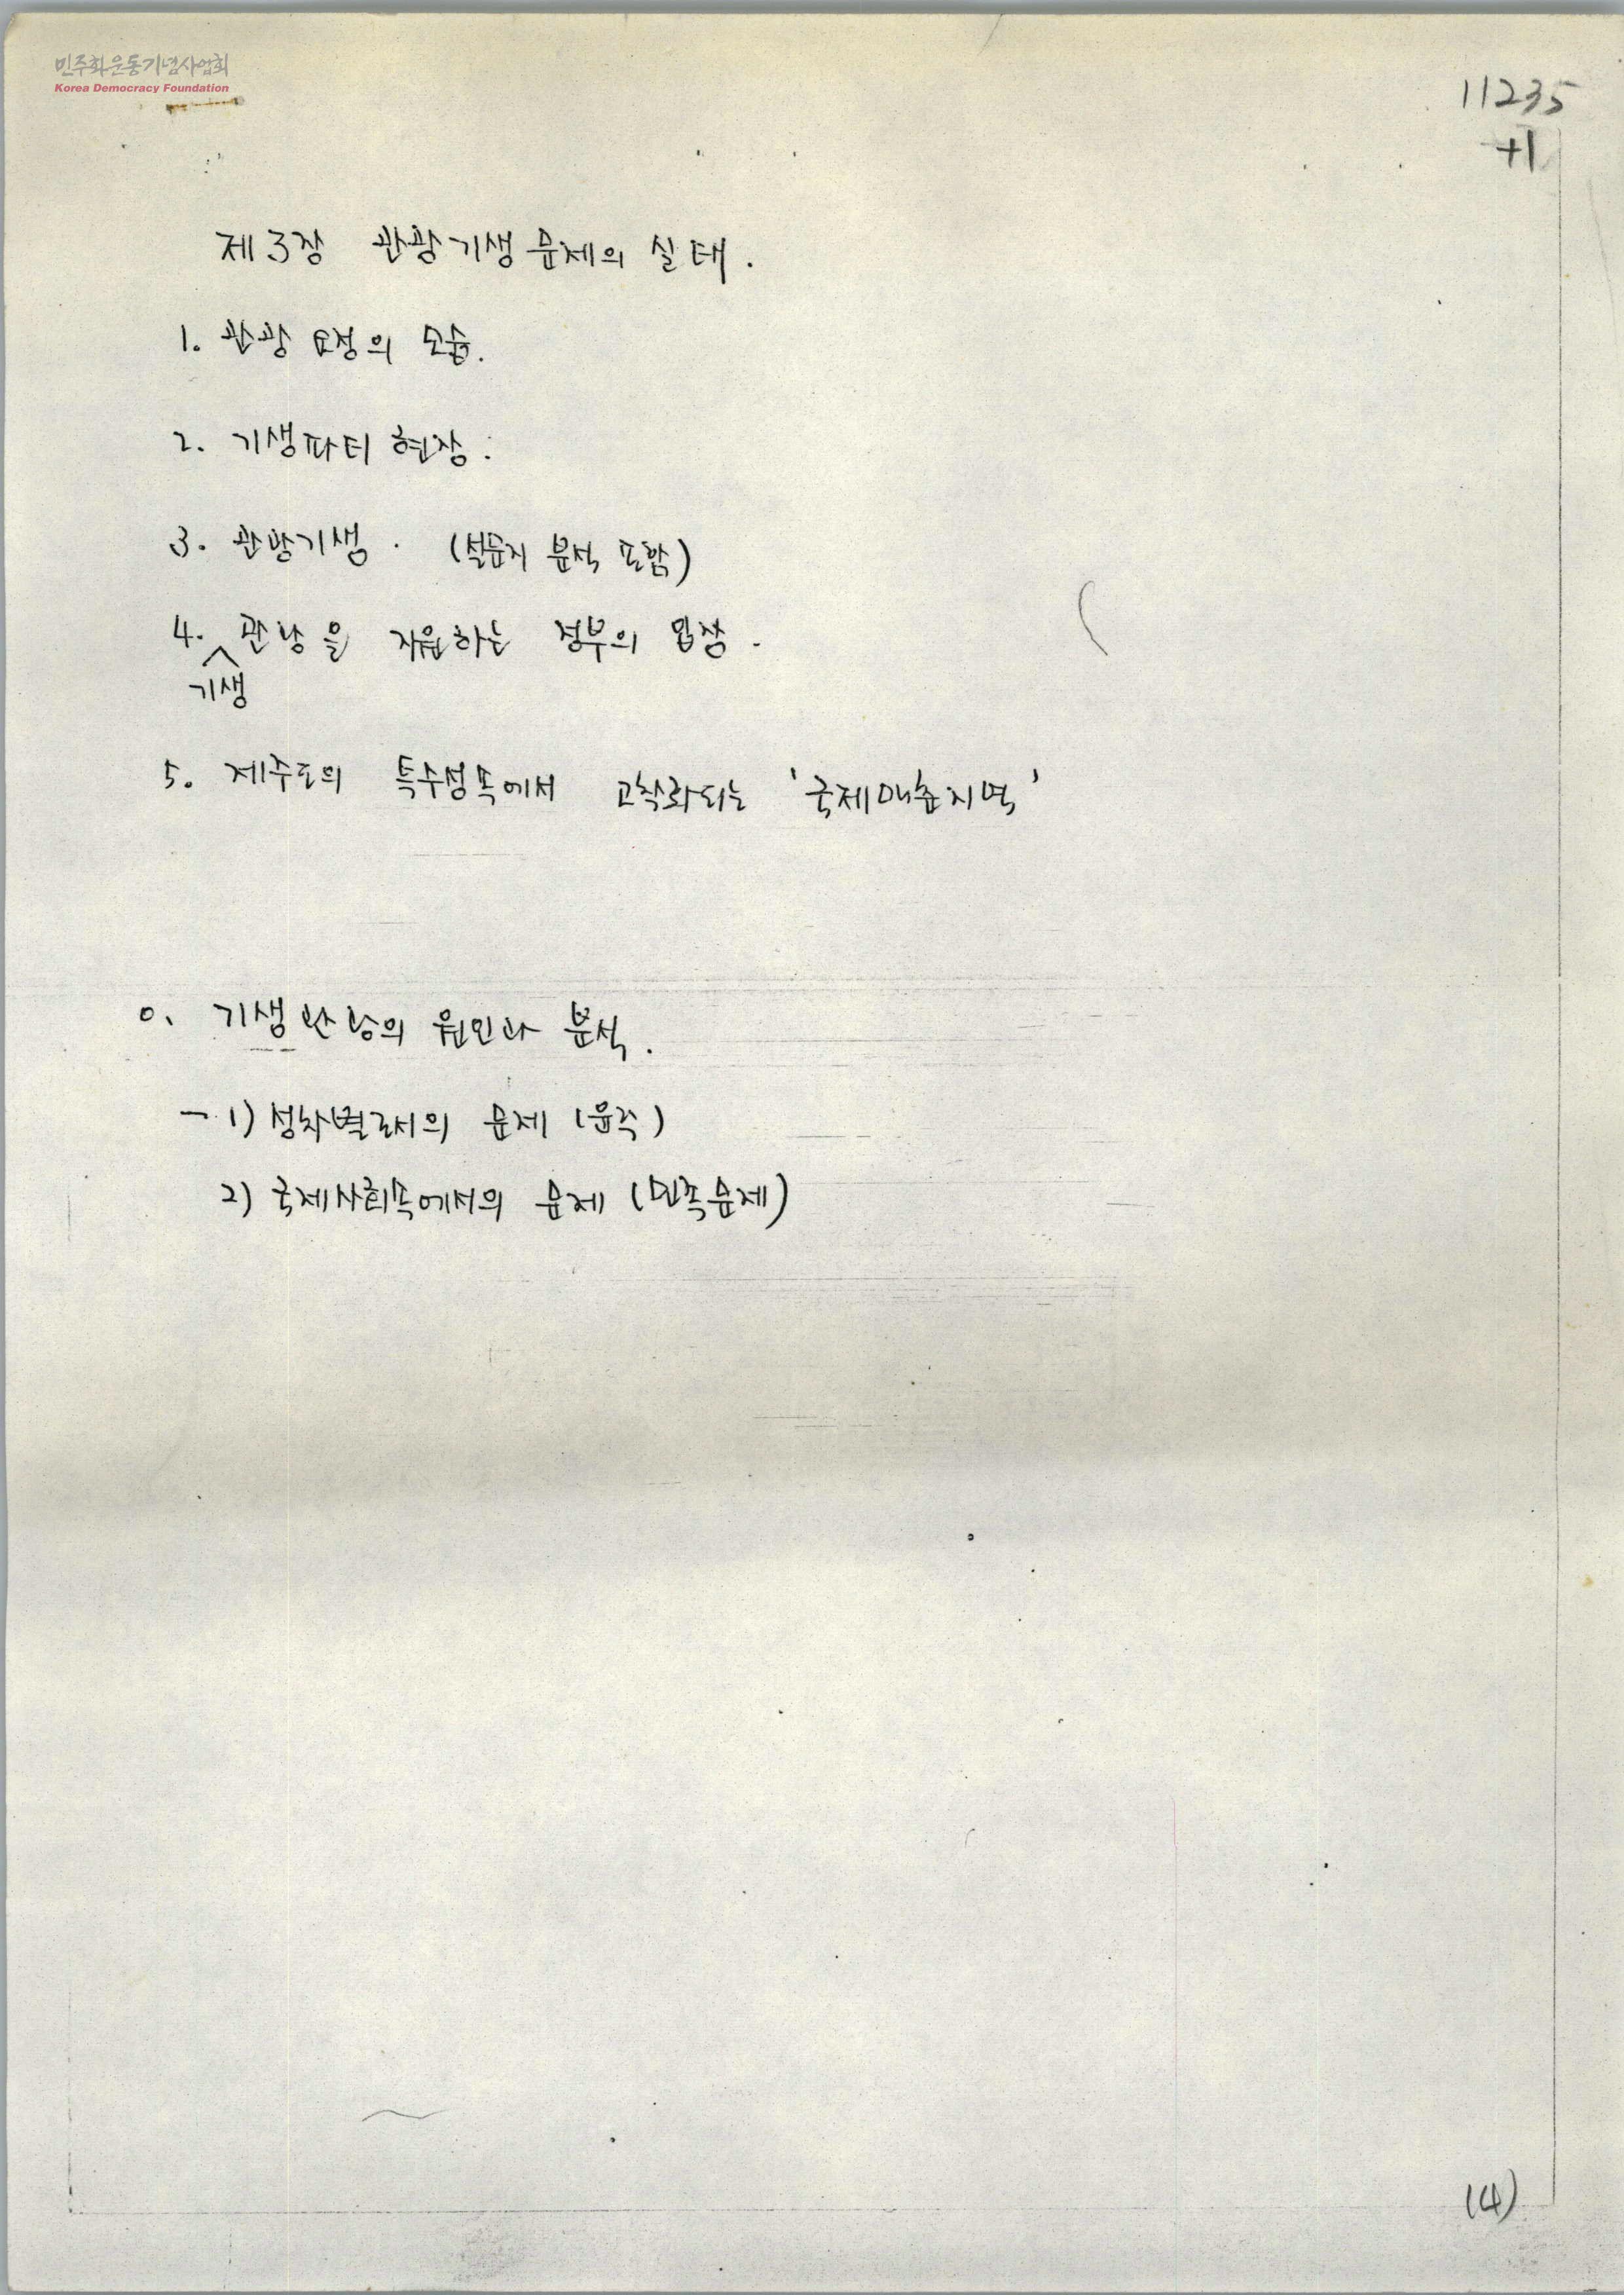 민주화운동기념사업회
Korea Democracy Foundation
11235
+1
제3장 관광기생 문제의 실태.
1. 관광 요정의 모습.
2. 기생파티 현장.
3. 관광기생. (설문지 분석 포함)
4. 관광을 지원하는 정부의 입장.
기생
5. 제주도의 특수성속에서 고착화되는 '국제매춘지역'
o. 기생관광의 원인과 분석.
- 1) 성차별로서의 문제 (윤락)
2) 국제사회속에서의 문제 (민족문제)
(4)